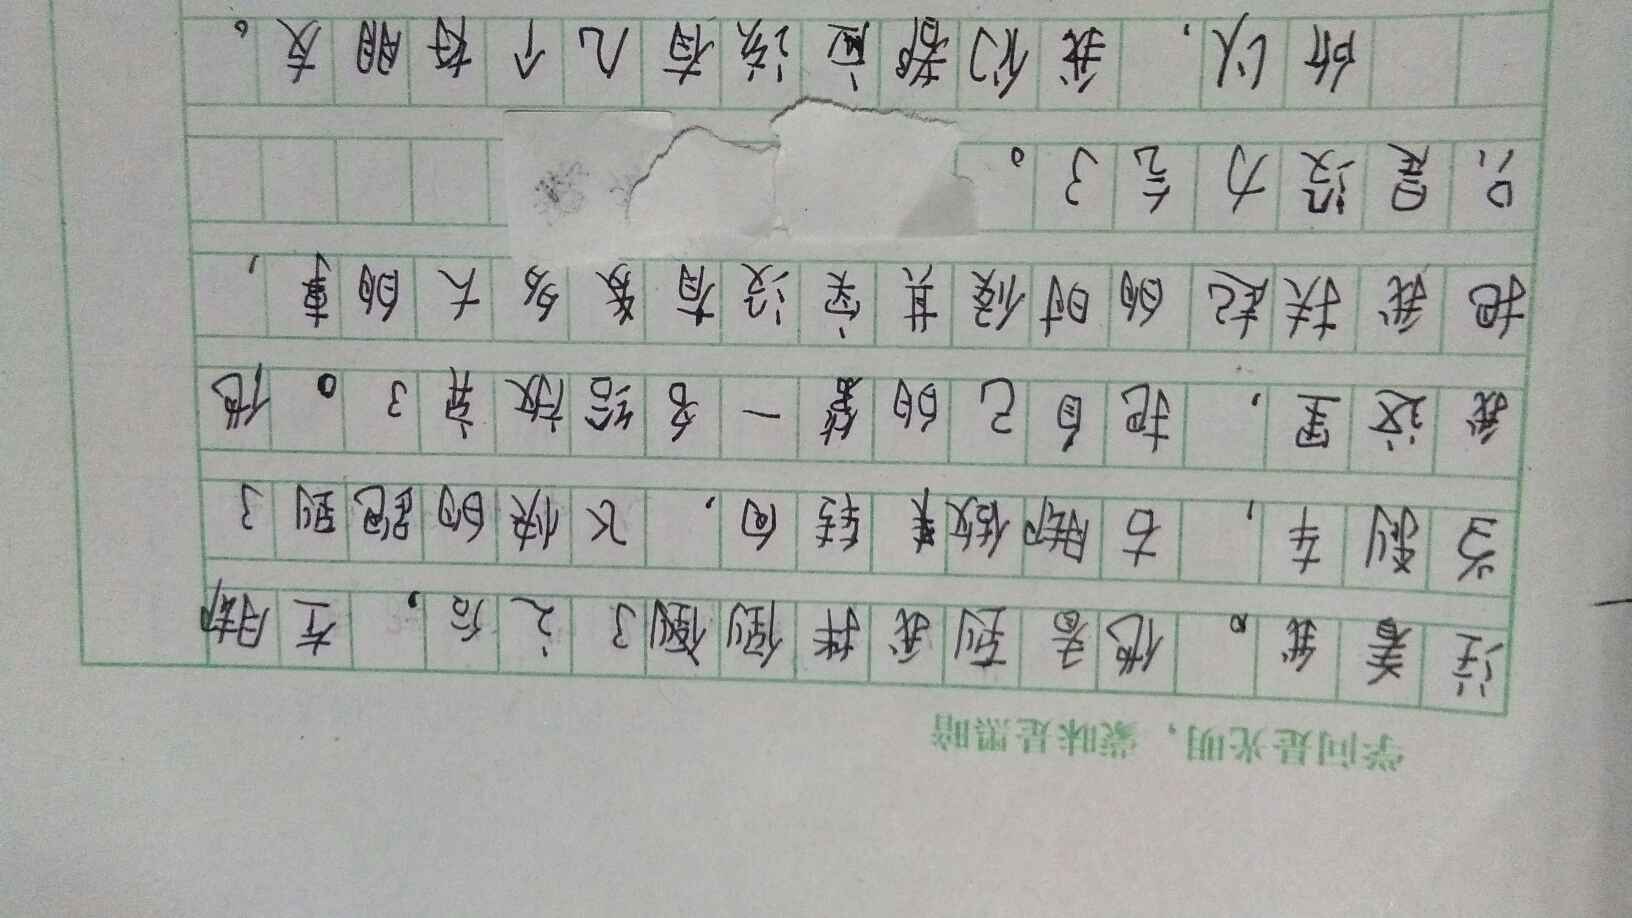 学问是光明，蒙昧是黑暗
注着我。他看到我摔倒倒了之后，左脚
当刹车，右脚做来转向，飞快的跑到了
我这里，把自己的第一名给放弃了。他
把我扶起的时候其实没有多大的事，
只是没力气了。
所以，我们都应该有几个好朋友。